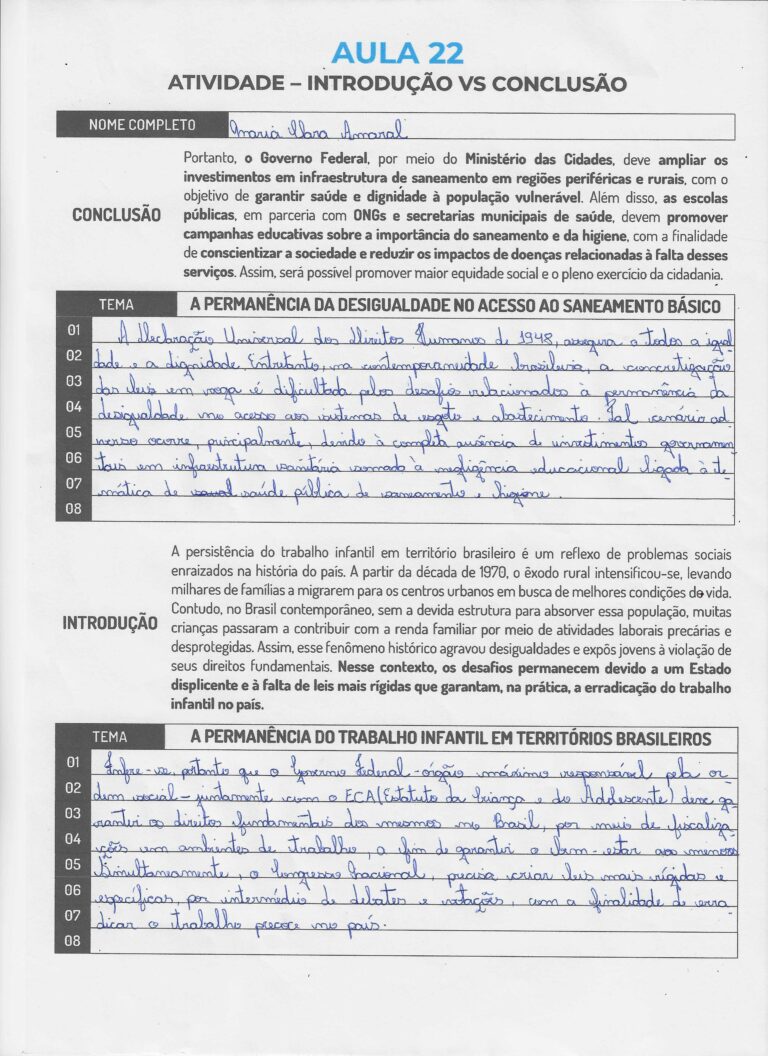 AULA 22
ATIVIDADE – INTRODUÇÃO VS CONCLUSÃO
NOME COMPLETO Maria Clara Amaral
Portanto, o Governo Federal, por meio do Ministério das Cidades, deve ampliar os
investimentos em infraestrutura de saneamento em regiões periféricas e rurais, com o
objetivo de garantir saúde e dignidade à população vulnerável. Além disso, as escolas
CONCLUSÃO públicas, em parceria com ONGs e secretarias municipais de saúde, devem promover
campanhas educativas sobre a importância do saneamento e da higiene, com a finalidade
de conscientizar a sociedade e reduzir os impactos de doenças relacionadas à falta desses
serviços. Assim, será possível promover maior equidade social e o pleno exercício da cidadania.
TEMA A PERMANÊNCIA DA DESIGUALDADE NO ACESSO AO SANEAMENTO BÁSICO
01 A Declaração Universal dos Direitos Humanos de 1948, assegura a todos a igual-
02 dade e a dignidade. Entretanto, na contemporaneidade brasileira, a concretização
03 das leis em voga é dificultada pelos desafios relacionados à permanência da
04 desigualdade no acesso aos sistemas de esgoto e abastecimento. Tal cenário ad-
05 verso ocorre, principalmente, devido à completa ausência de investimentos governamen-
06 tais em infraestrutura sanitária somado à negligência educacional ligada à te-
07 mática de saúde pública de saneamento e higiene.
08
A persistência do trabalho infantil em território brasileiro é um reflexo de problemas sociais
enraizados na história do país. A partir da década de 1970, o êxodo rural intensificou-se, levando
milhares de famílias a migrarem para os centros urbanos em busca de melhores condições de vida.
Contudo, no Brasil contemporâneo, sem a devida estrutura para absorver essa população, muitas
INTRODUÇÃO crianças passaram a contribuir com a renda familiar por meio de atividades laborais precárias e
desprotegidas. Assim, esse fenômeno histórico agravou desigualdades e expôs jovens à violação de
seus direitos fundamentais. Nesse contexto, os desafios permanecem devido a um Estado
displicente e à falta de leis mais rígidas que garantam, na prática, a erradicação do trabalho
infantil no país.
TEMA A PERMANÊNCIA DO TRABALHO INFANTIL EM TERRITÓRIOS BRASILEIROS
01 Infere-se, portanto que o Governo Federal - órgão máximo responsável pela or-
02 dem social - juntamente com o ECA (Estatuto da Criança e do Adolescente) deve ga-
03 rantir os direitos fundamentais dos mesmos no Brasil, por meio de fiscaliza-
04 ções em ambientes de trabalho, a fim de garantir o bem-estar aos menores
05 Simultaneamente, o Congresso Nacional, precisa criar leis mais rígidas e
06 específicas, por intermédio de debates e votações, com a finalidade de erra-
07 dicar o trabalho precoce no país.
08